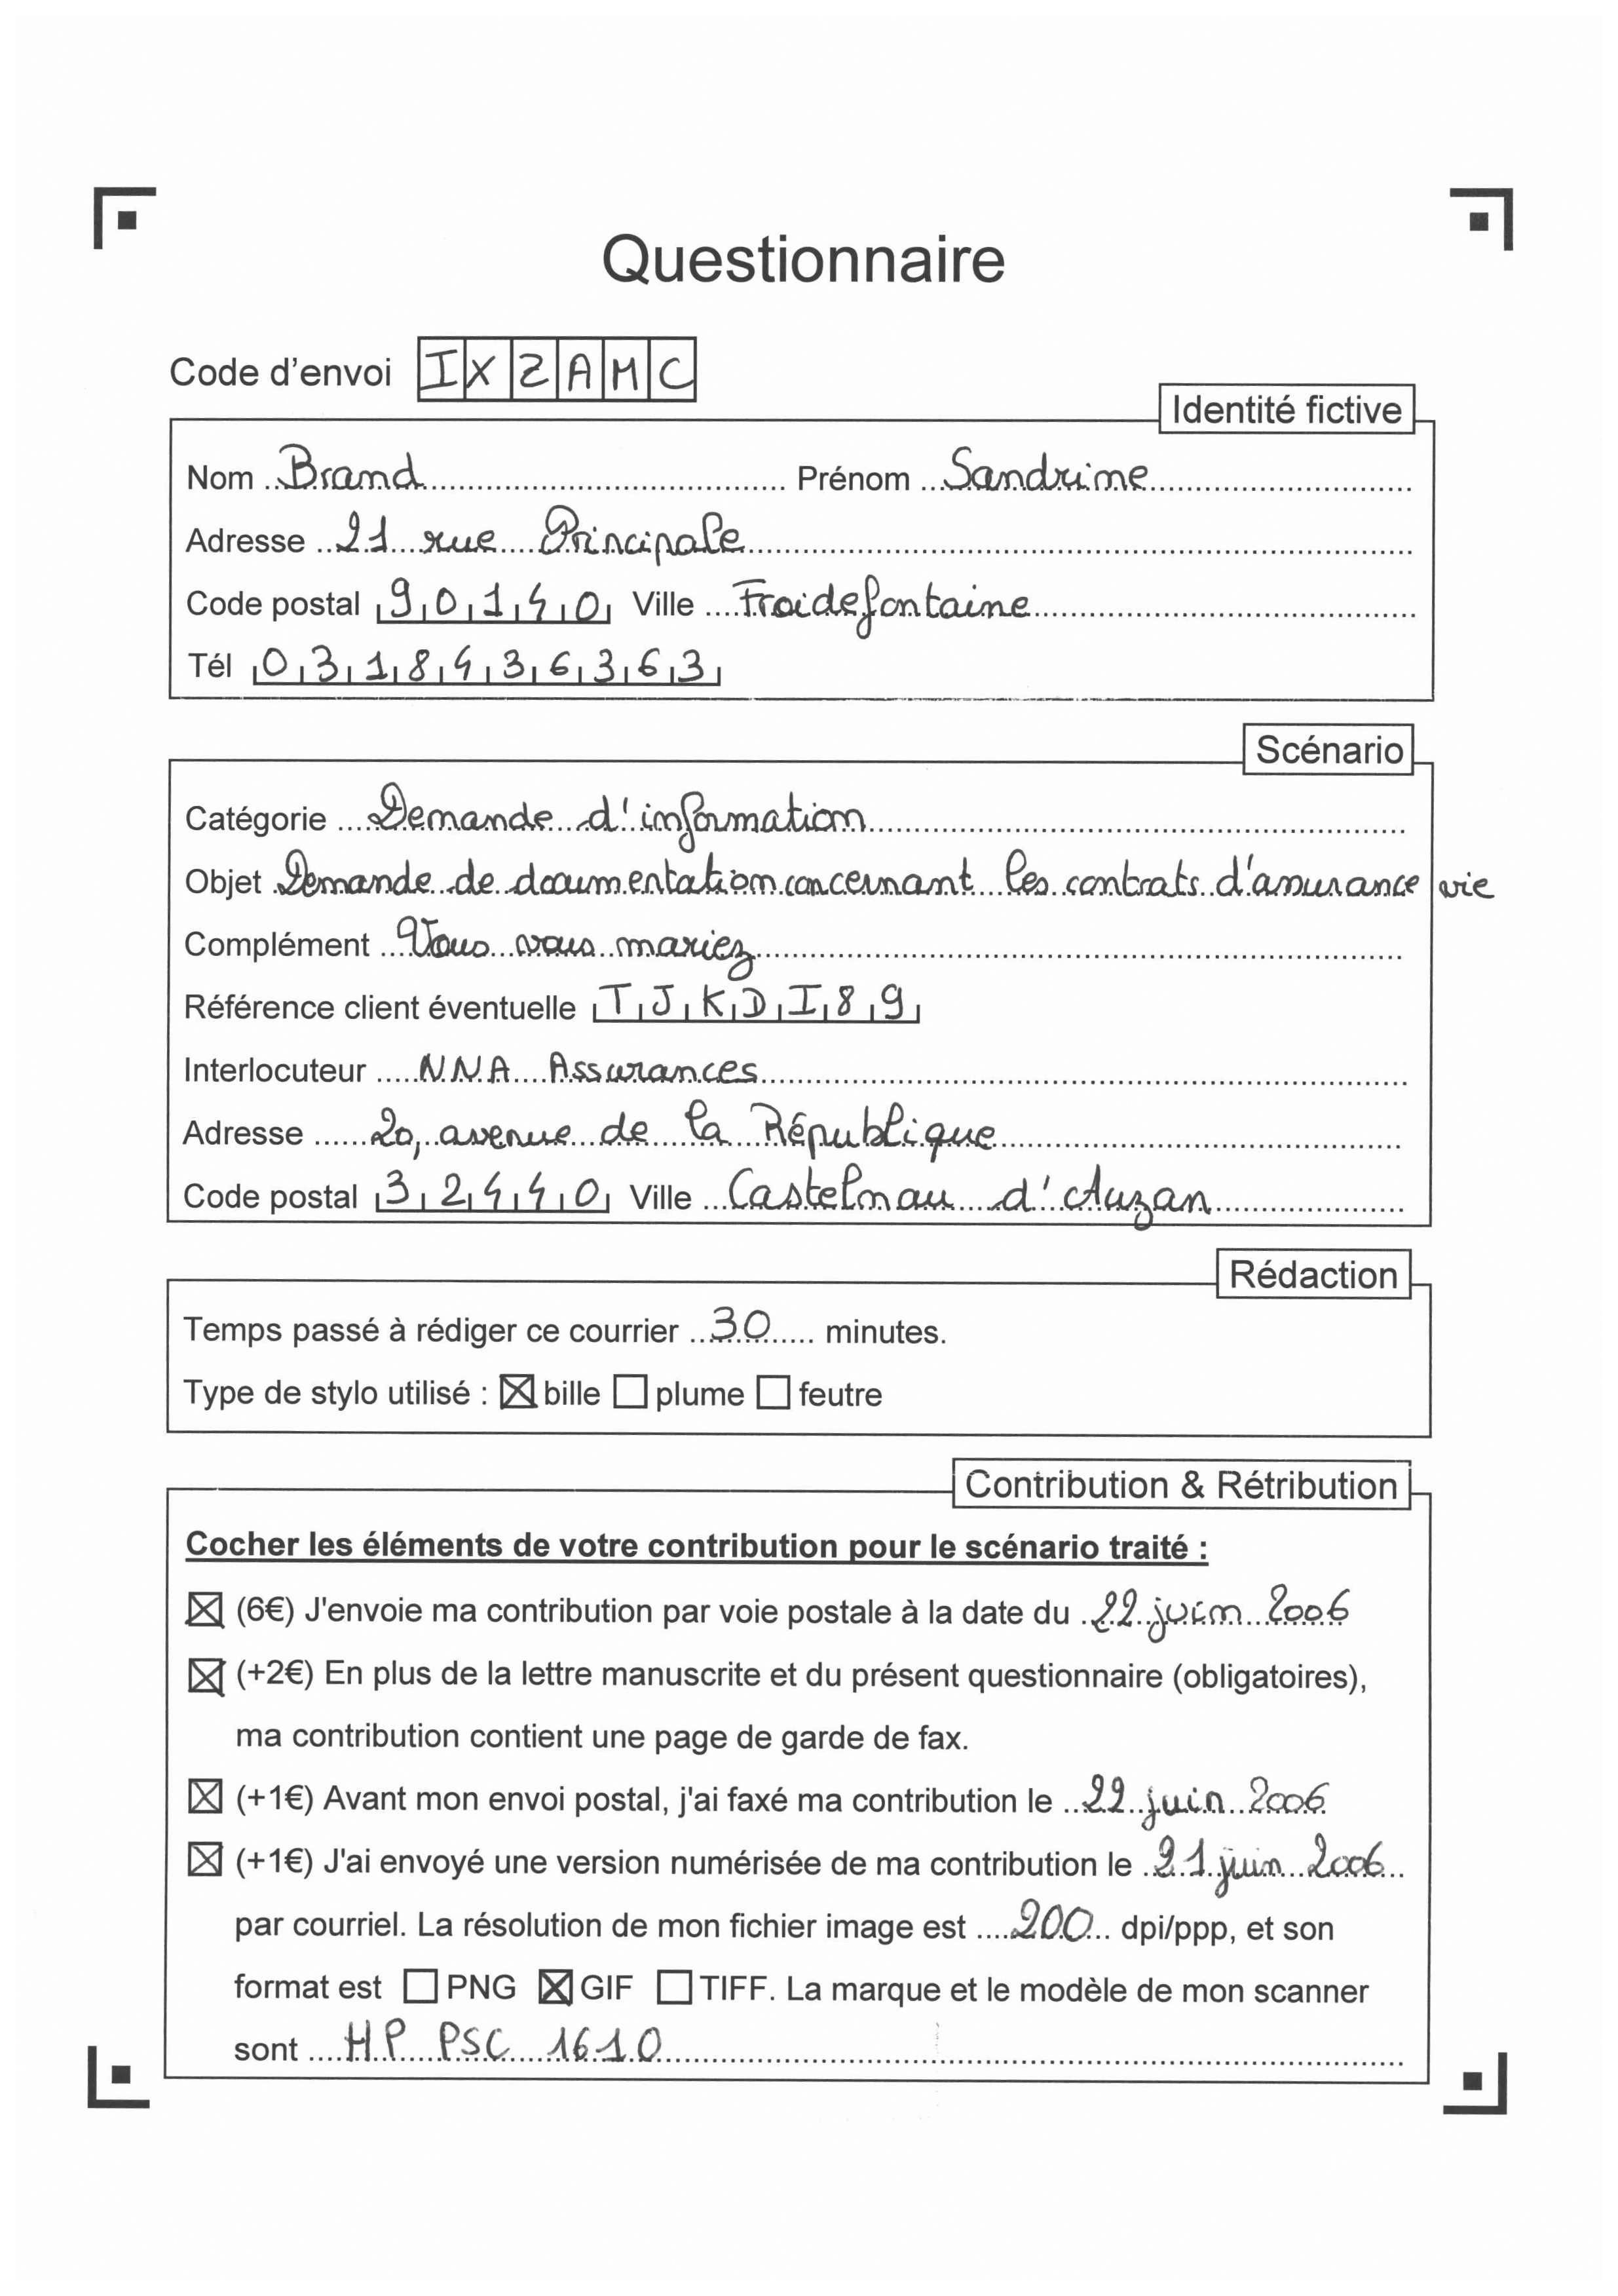 Questionnaire
Code d'envoi IXZAMC
Identité fictive
Nom Brand Prénom Sandrine
Adresse 21 rue Principale
Code postal 90140 Ville Froidefontaine
Tél 0318436363
Scénario
Catégorie Demande d'information
Objet Demande de documentation concernant les contrats d'assurance vie
Complément Vous vous mariez
Référence client éventuelle TJKDI89
Interlocuteur NNA Assurances
Adresse 20, avenue de la République
Code postal 32440 Ville Castelnau d'Auzan
Rédaction
Temps passé à rédiger ce courrier 30 minutes.
Type de stylo utilisé : ☒ bille ☐ plume ☐ feutre
Contribution & Rétribution
Cocher les éléments de votre contribution pour le scénario traité :
☒ (6€) J'envoie ma contribution par voie postale à la date du 22 juin 2006
☒ (+2€) En plus de la lettre manuscrite et du présent questionnaire (obligatoires),
ma contribution contient une page de garde de fax.
☒ (+1€) Avant mon envoi postal, j'ai faxé ma contribution le 22 juin 2006
☒ (+1€) J'ai envoyé une version numérisée de ma contribution le 21 juin 2006
par courriel. La résolution de mon fichier image est 200 dpi/ppp, et son
format est ☐ PNG ☒ GIF ☐ TIFF. La marque et le modèle de mon scanner
sont HP PSC 1610